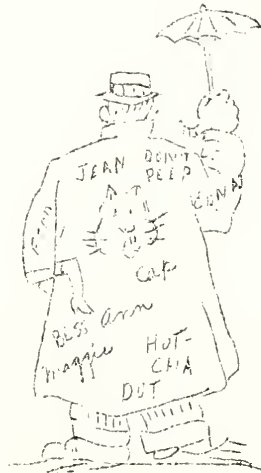 JEAN DON'T
PEEP
EDNA
Cat
BESS Ann
Maggie
HOT-
CHA
DOT